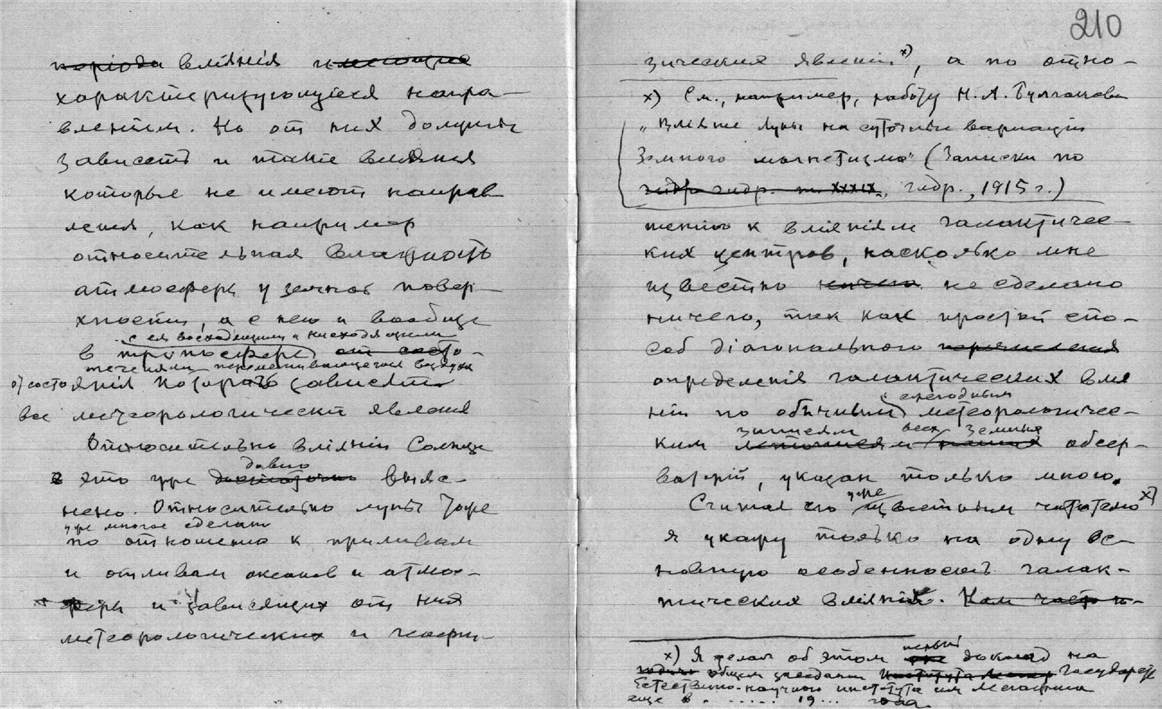 періода вліянія имеющие
характеризующиеся напра-
вленіем. Но от них должны
зависеть и такіе вліянія
которые не имеют направ
ленія, как например
относительная влажность
атмосферы у земной повер-
хности, а с нею и вообще
с ея восходящими и нисходящими
в тропосфере от состо-
теченіями перемешивающегося воздуха
от состоянія которого зависят
все метеорологическія явленія
Относительно вліянія Солнца
давно
это уже достаточно выяс-
нено. Относительно луны тоже
уже многое сделано
по отношенію к приливам
и отливам океанов и атмос-
феры и зависящих от них
метеорологических и геофи-
210
зических явленій х), а по отно-
х) См., например, работу Н. А. Булгакова
"Вліяніе луны на суточные варіаціи
Земного магнетизма" (Записки по
гидр. т. XXXIX, гидр., 1915 г.)
шенію к вліяніям галактичес-
ких центров, насколько мне
известно ничего не сделано
ничего, так как простой спо-
соб діагональнаго
определенія галактических влія
ній по обычным метеорологичес-
с ежегодным
записям всех земных
ким и обсер-
ваторій, указан только мною.
Считая его уже известным читателю х)
я укажу только на одну ос-
новную особенность галак-
тических вліяній. Как часто
первый
х) Я делал об этом доклад на
общем заседаніи Института Государств
Естественно-научного института им Лесгафта
еще в . ..... 19... года